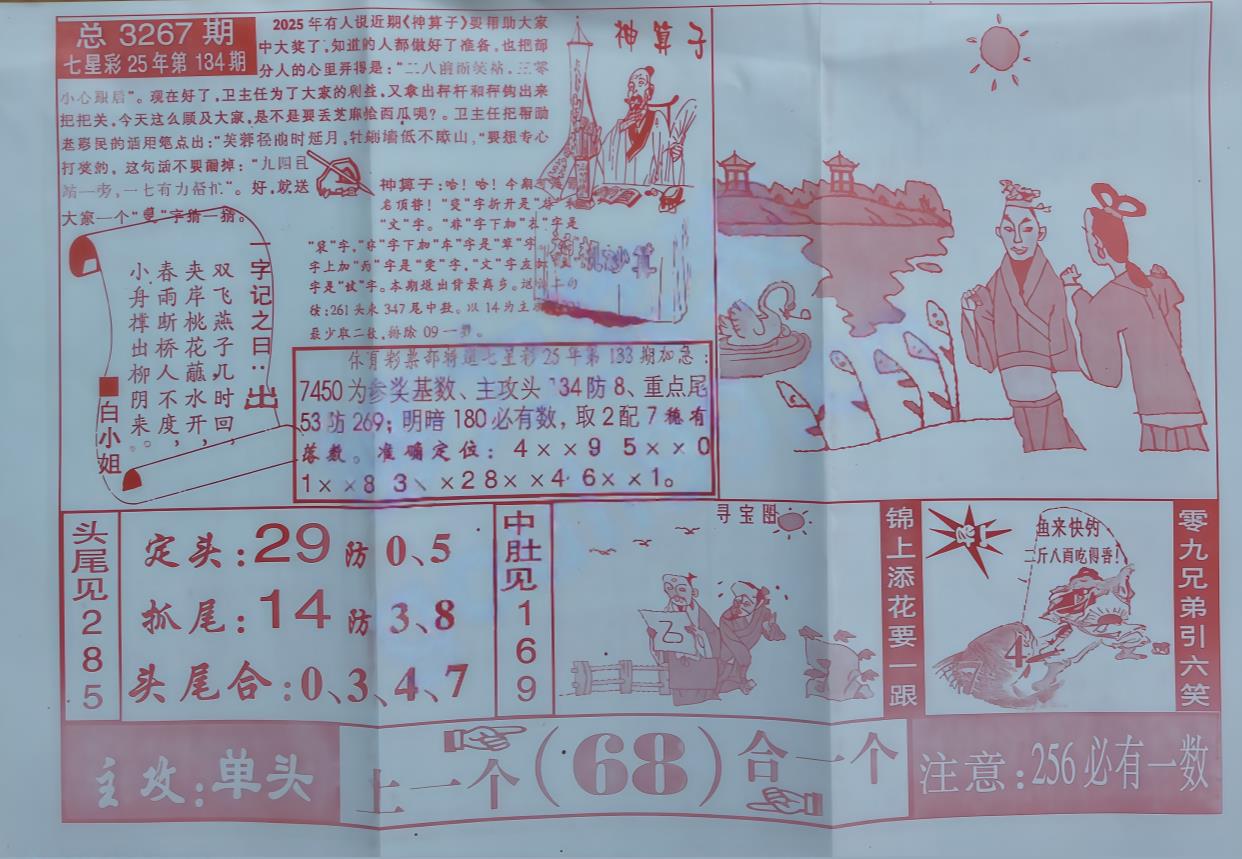 总 3267 期
七星彩 25 年第 134 期
2025 年有人说近期《神算子》要帮助大家
中大奖了,知道的人都做好了准备,也把部
分人的心里弄得是:"二八前面笑站,三零
小心跟后"。现在好了,卫主任为了大家的利益,又拿出秤杆和秤钩出来
把把关,今天这么顾及大家,是不是要丢芝麻捡西瓜呢?。卫主任把帮助
老彩民的活用笔点出:"芙蓉径曲时延月,牡蛎墙低不障山,"要想专心
打奖的,这句话不要漏掉:"九四且
站一旁,一七有力
。好,就送
大家一个"
"字猜一猜。
神算子
神算子:哈!哈!今期
名顶替!"
"字折开是"
"文"字。"非"字下加"衣"字是
"裴"字,
字下加"车"字是"辈"字
字上加"雨"字是"
"字,"文"字左
字是"
"字。本期道出背景离乡。
:261 头来 347 尾中数。以 14 为主
最少取二数,排除 09 一
一字记之曰:出
双飞燕子几时回,
夹岸桃花蘸水开,
春雨断桥人不度,
小舟撑出柳阴来。
■白小姐
体育彩票部精选七星彩 25 年第 133 期加急:
7450 为参奖基数、主攻头 134 防 8、重点尾
53 防 269;明暗 180 必有数,取 2 配 7 稳有
落数。准确定位:4××9 5××0
1××8 3××2 8××4 6××1。
头尾见285
定头:29 防 0、5
抓尾:14 防 3、8
头尾合:0、3、4、7
中肚见169
寻宝图
乙
锦上添花要一跟
鱼来快钓
二斤八两吃得香!
7
4
零九兄弟引六笑
主攻:单头
上一个(68)合一个
注意:256 必有一数